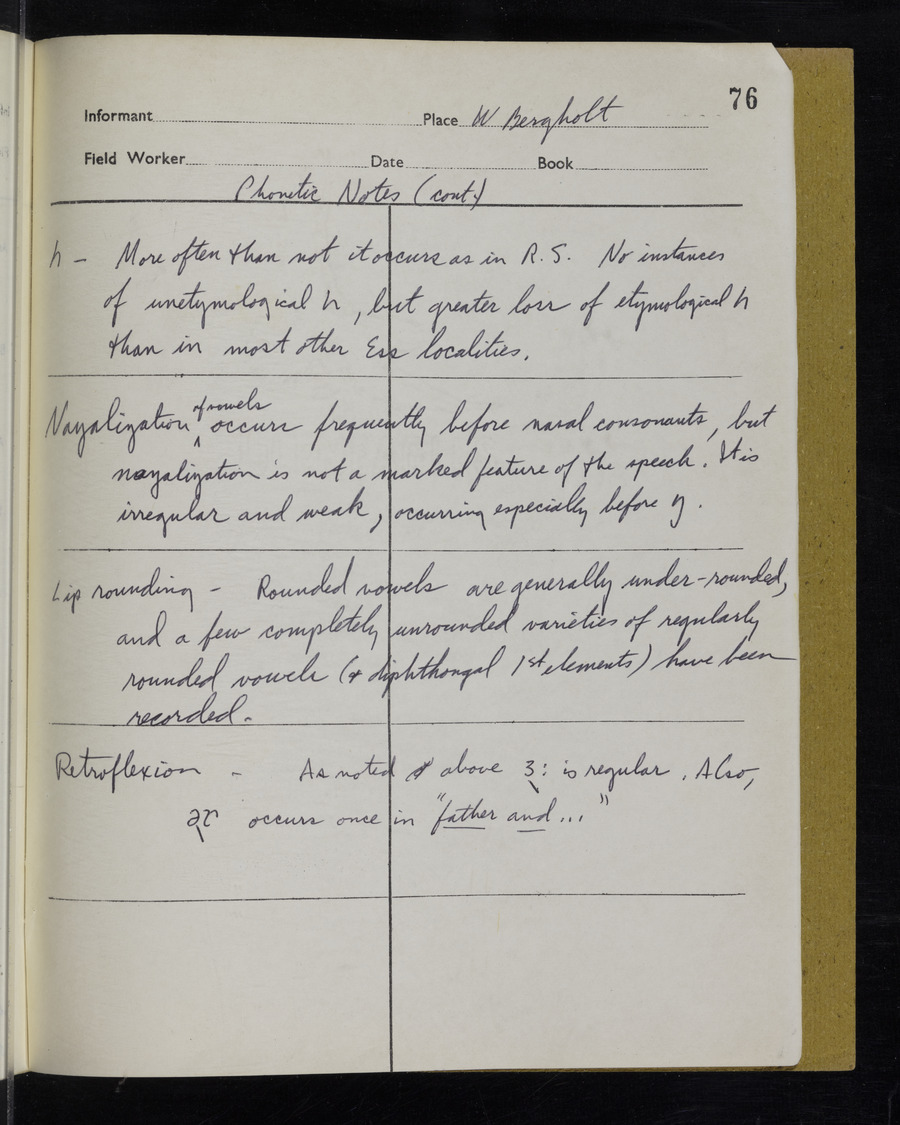 76
Informant Place W Bergholt
Field Worker Date Book
Phonetic Notes (cont.)
h – More often than not it occurs as in R.S. No instances
of unetymological h, but greater loss of etymological h
than in most other Ess localities.
of vowels
Nazalization ^ occurs frequently before nasal consonants, but
nazalization is not a marked feature of the speech. It is
irregular and weak, occurring especially before ŋ.
Lip rounding – Rounded vowels are generally under-rounded,
and a few completely unrounded varieties of regularly
rounded vowels (+ diphthongal 1st elements) have been
recorded.
Retroflexion – As noted above ɜ: is regular. Also,
occurs once in "father and..."